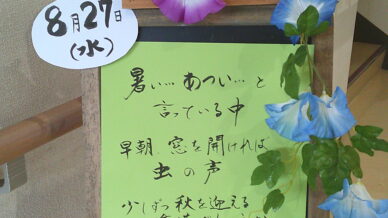 8月27日
(水)
暑い… あつい… と
言っている中
早朝 窓を開ければ
虫の声
少しずつ秋を迎える